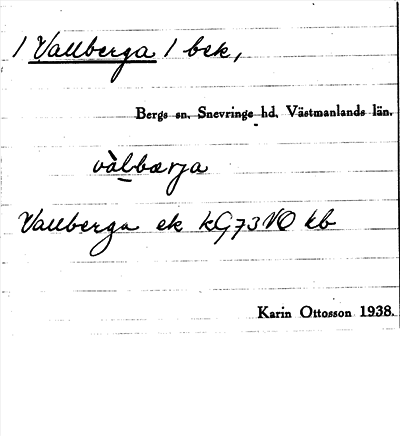 / Vallberga / bek,
Bergs sn. Snevringe hd. Västmanlands län.
vàlbærja
Vallberga ek kG73NO kb
Karin Ottosson 1938.